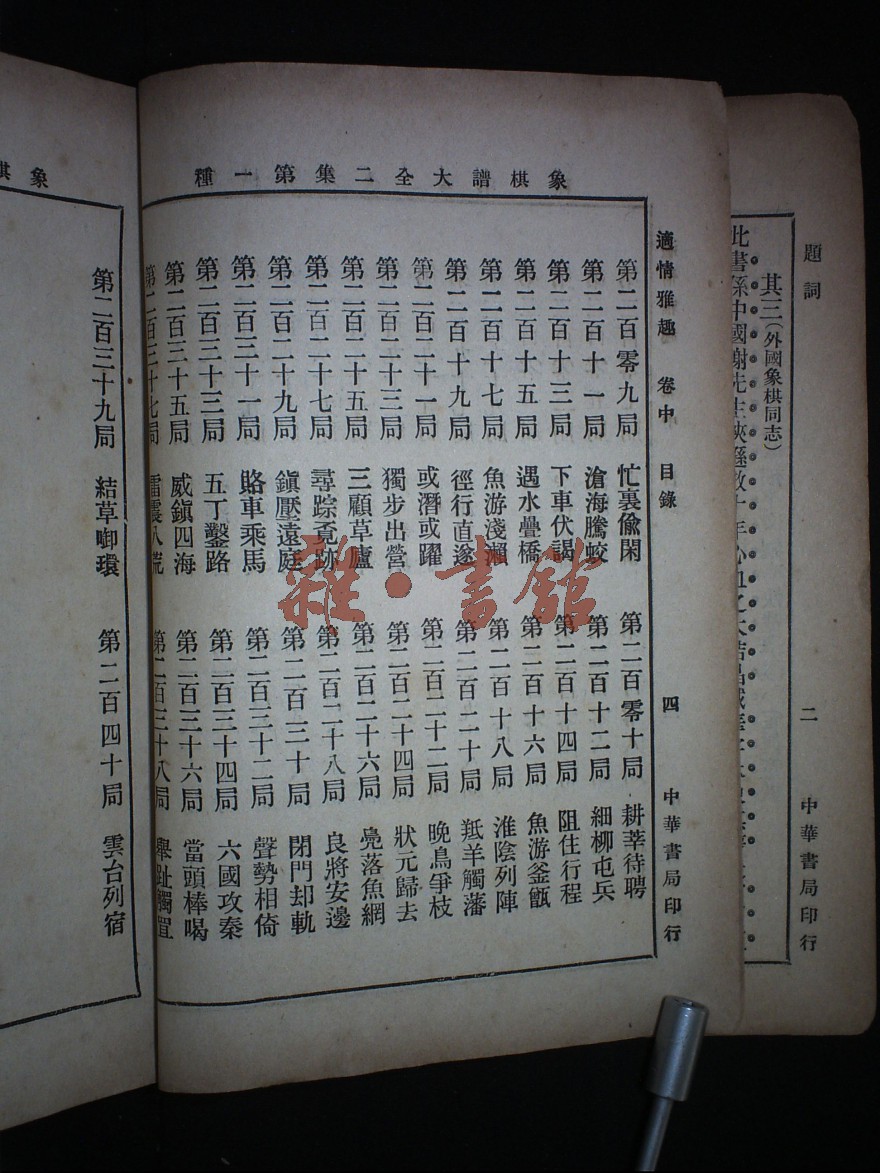 題詞
二
中華書局印行
其三(外國象棋同志)
象棋譜大全二集第一種
適情雅趣 卷中 目錄
四
中華書局印行
第二百零九局 忙裏偸閑 第二百零十局 耕莘待聘
第二百十一局 滄海騰蛟 第二百十二局 細柳屯兵
第二百十三局 下車伏謁 第二百十四局 阻住行程
第二百十五局 遇水疊橋 第二百十六局 魚游釜甑
第二百十七局 魚游淺瀨 第二百十八局 淮陰列陣
第二百十九局 徑行直遂 第二百二十局 羝羊觸藩
第二百二十一局 或潛或躍 第二百二十二局 晚鳥爭枝
第二百二十三局 獨步出營 第二百二十四局 狀元歸去
第二百二十五局 三顧草廬 第二百二十六局 鳧落魚網
第二百二十七局 尋踪覓跡 第二百二十八局 良將安邊
第二百二十九局 鎭壓遠庭 第二百三十局 閉門却軌
第二百三十一局 賂車乘馬 第二百三十二局 聲勢相倚
第二百三十三局 五丁鑿路 第二百三十四局 六國攻秦
第二百三十五局 威鎭四海 第二百三十六局 當頭棒喝
第二百三十七局 雷震八荒 第二百三十八局 舉趾觸罝
象棋
第二百三十九局 結草啣環 第二百四十局 雲台列宿
雜·書館